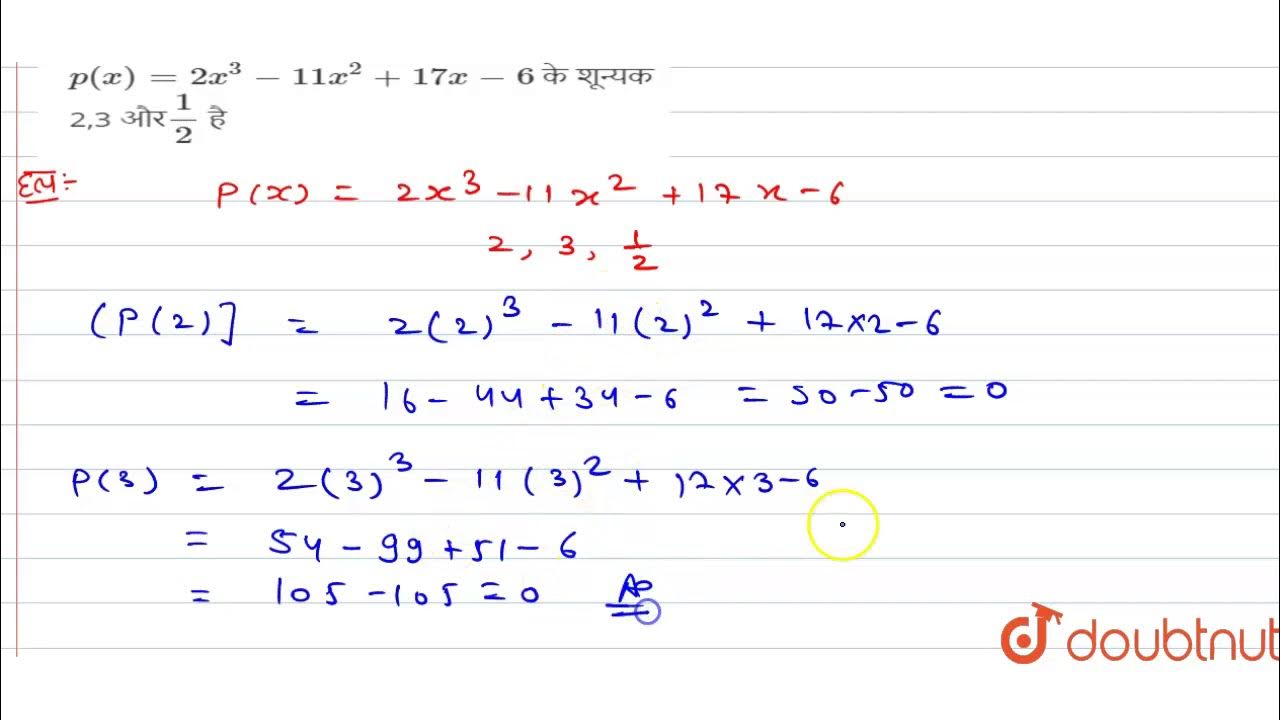 p(x) = 2x³ − 11x² + 17x − 6 के शून्यक
2,3 और 1/2 है
हल:-
P(x) = 2x³ - 11x² + 17x - 6
2, 3, 1/2
(P(2)] = 2(2)³ - 11(2)² + 17×2 - 6
= 16 - 44 + 34 - 6 = 50 - 50 = 0
P(3) = 2(3)³ - 11(3)² + 17×3 - 6
= 54 - 99 + 51 - 6
= 105 - 105 = 0
doubtnut